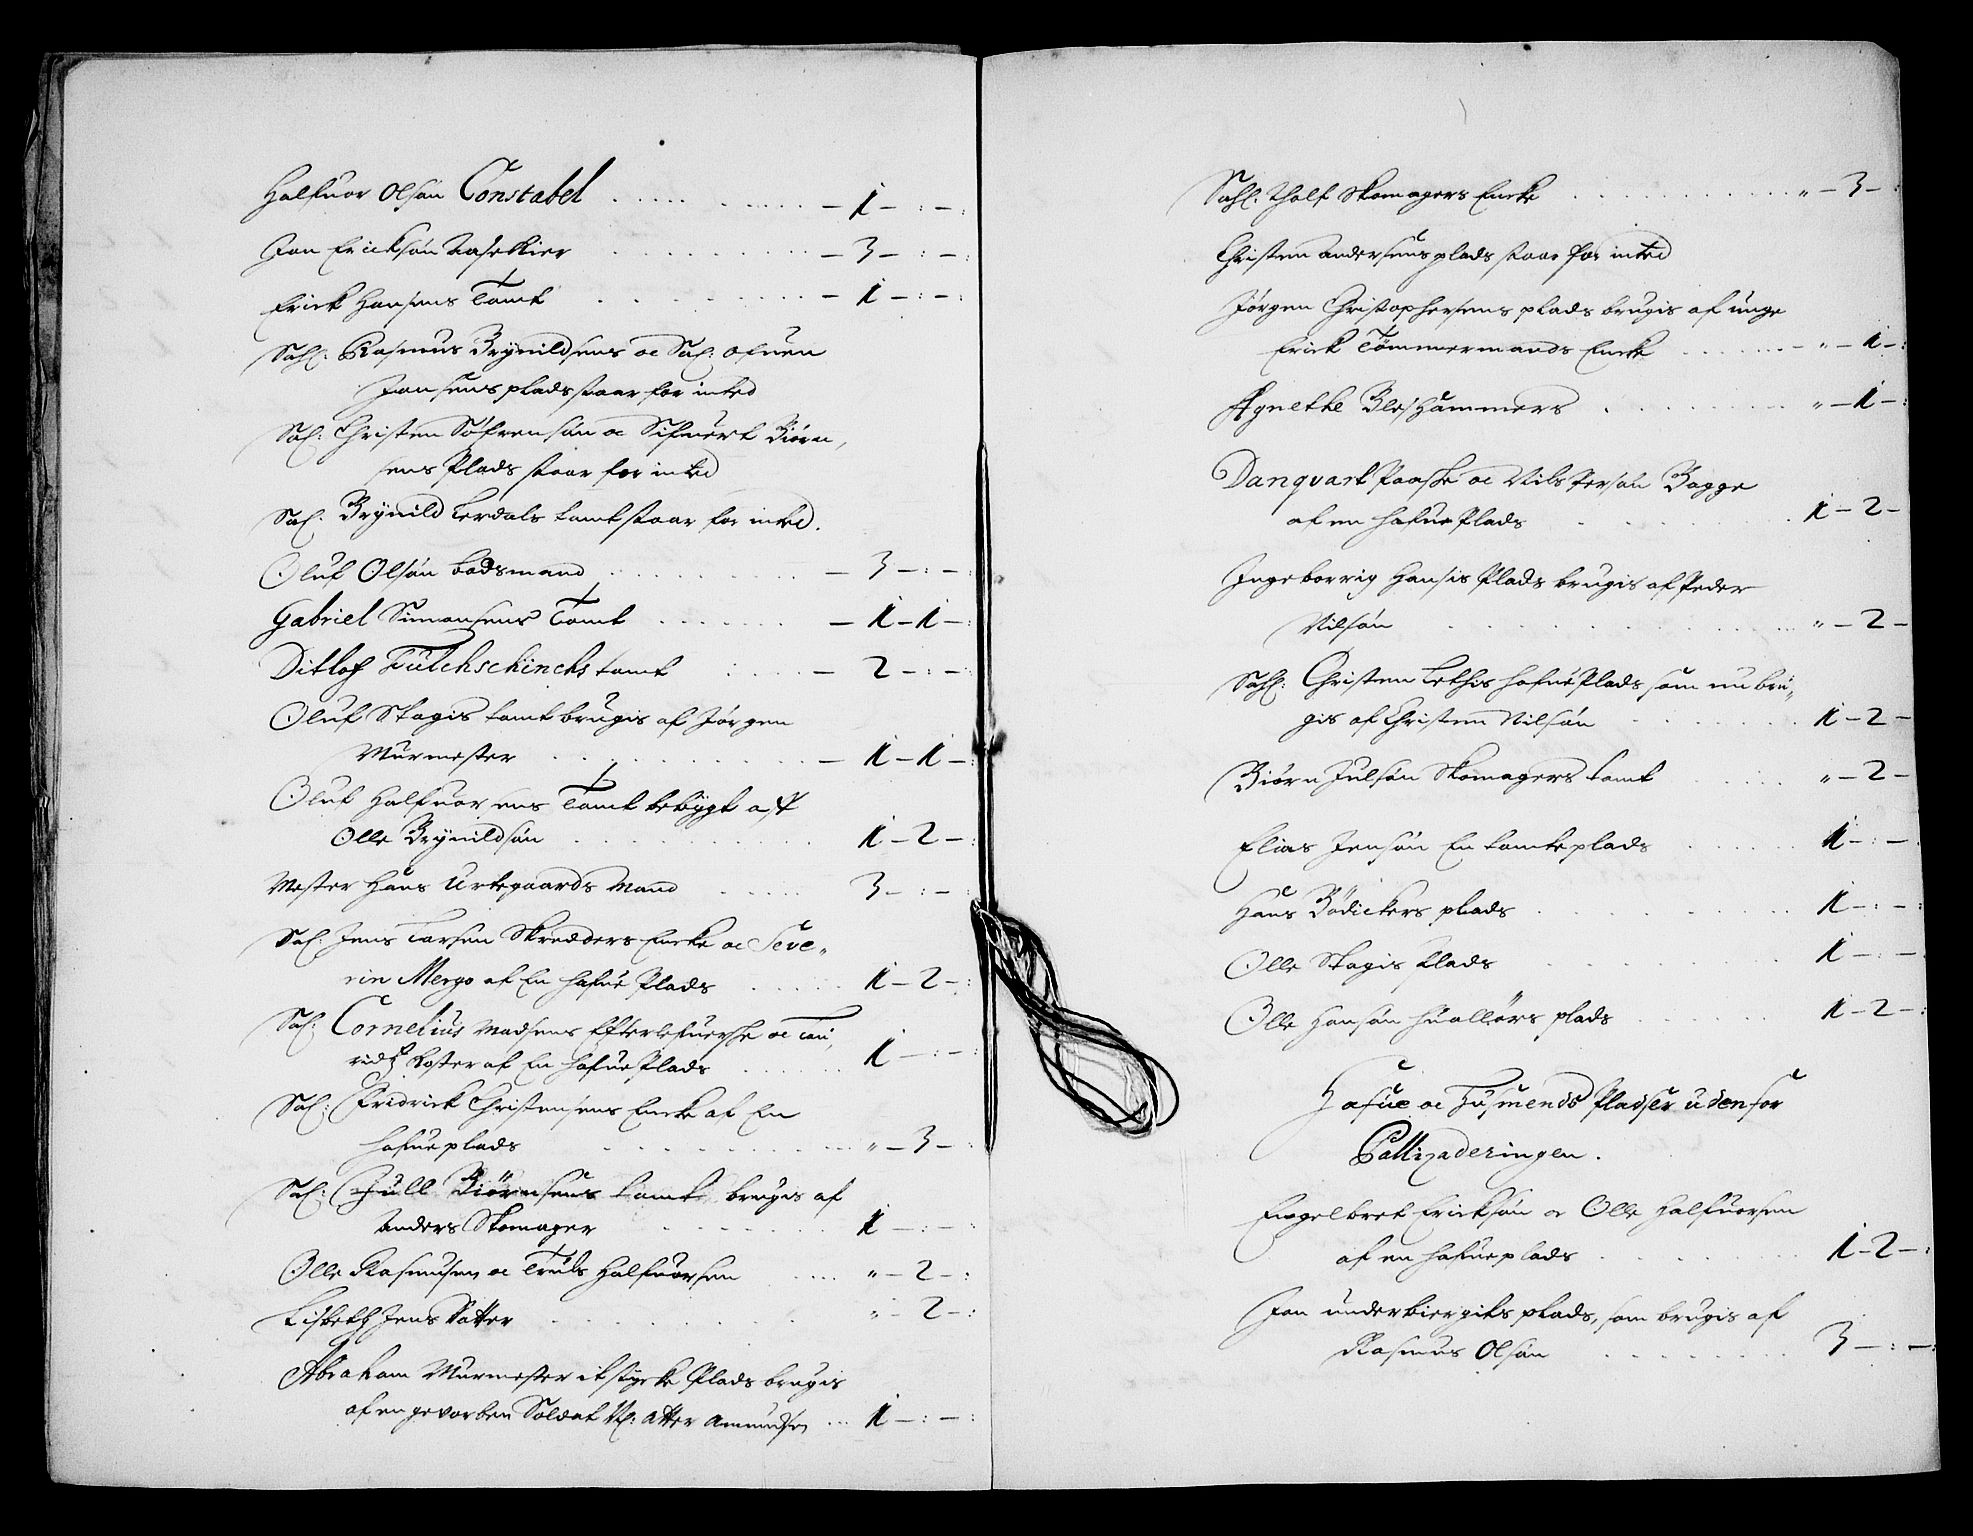 Halfuor Olsøn Constabel . . . . . . . . . . – 1 – : – :
Jon Ericksøn . . . . . . . . – 3 – : – :
Erick Hansens Tomt . . . . . . . – 1 – : – :
Sahl: Rasmus Brynildsens oc Sal: Ofuen
Jonsens plads staar for inted
Sal: Christen Søfrensøn oc Sifuert Biørn,
sens Plads staar for inted
Sal: Brynild Lerdals tomt staar for inted.
Oluf Olsøn Bodsmand . . . . . . . . – 3 – : – :
Gabriel Simonsens Tomt . . . . . . – 1 – 1 – :
Ditlof Fülchschincks tomt . . . . – 2 – : – :
Oluf Skagis tomt brugis af Jørgen
Murmester . . . . . . . . . – 1 – 1 – :
Oluf Halfuorsens Tomt bebygt aff
Olle Brynildsøn . . . . . . . . 1 – 2 – :
Mester Hans Urtegaards Mand . . . . . 3 – : – :
Sal: Jens Larsen Skredders Encke oc Seve„
rin Mergo af En hafue Plads . . . . . 1 – 2 – :
Sal: Cornelius Madsens Efterlefuerske oc Lau
ridtz af En hafue Plads . . . . . . 1 – : – :
Sal: Fridrick Christensens Encke af En
hafue plads . . . . . . . . . . „ – 3 – :
Sal: Gull Biørnsens tomt brugis af
Anders Skomager . . . . . . 1 – : – :
Olle Rasmusen oc Truls Halfuorsen . . . . „ – 2 – :
Lisbeth Jens Datter . . . . . . . . „ – 2 – :
Abraham Murmester it stycke Plads brugis
af en gevorben Soldat N: Atter Amundsen ... 1 – : – :
Sahl: Tholf Skomagers Encke . . . . . . . . . „ – 3 – :
Christen Andersens plads staar for inted
Jørgen Christophersens plads brugis af unge
Erick Tømmermands Encke . . . . . . – „ – 1 – :
Agnethe Bleshammers . . . . . . . „ – 1 – :
Danqvart Paaske oc Nils Persøn Bagge
af en hafue Plads . . . . . . 1 – 2 –
Ingeborrig Hansis Plads brugis af Peder
Nilsøn . . . . . . . . . . . . „ – 2 –
Sahl: Christen Lethis hafue Plads som nu bru„
gis af Christen Nilsøn . . . . . . . 1 – 2 –
Biørn Julsøn Skomagers tomt . . . . „ – 2 –
Elias Jensøn En tomteplads . . . . . . 1 – : – :
Hans Bödickers plads . . . . . . . . . . 1 – : – :
Olle Skagis Plads . . . . . . . . . 1 – : – :
Olle Hansøn plads . . . . . . 1 – 2 – :
Hafue oc Pladser uden for
Pallizaderingen.
Engelbret Ericksøn oc Olle Halfuorsen
af en hafue plads . . . . . . . 1 – 2 – :
Jon underbiergits plads, som brugis af
Rasmus Olsøn . . . . . . . . 3 – : – :